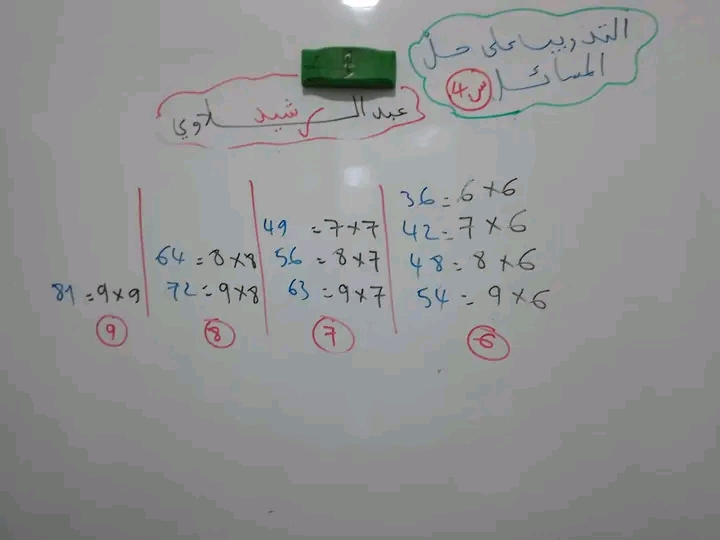 التدريب على حل
المسائل س4
عبد الرشيد لاوي
36 = 6 × 6
42 = 7 × 6
48 = 8 × 6
54 = 9 × 6
6
49 = 7 × 7
56 = 8 × 7
63 = 9 × 7
7
64 = 8 × 8
72 = 9 × 8
8
81 = 9 × 9
9